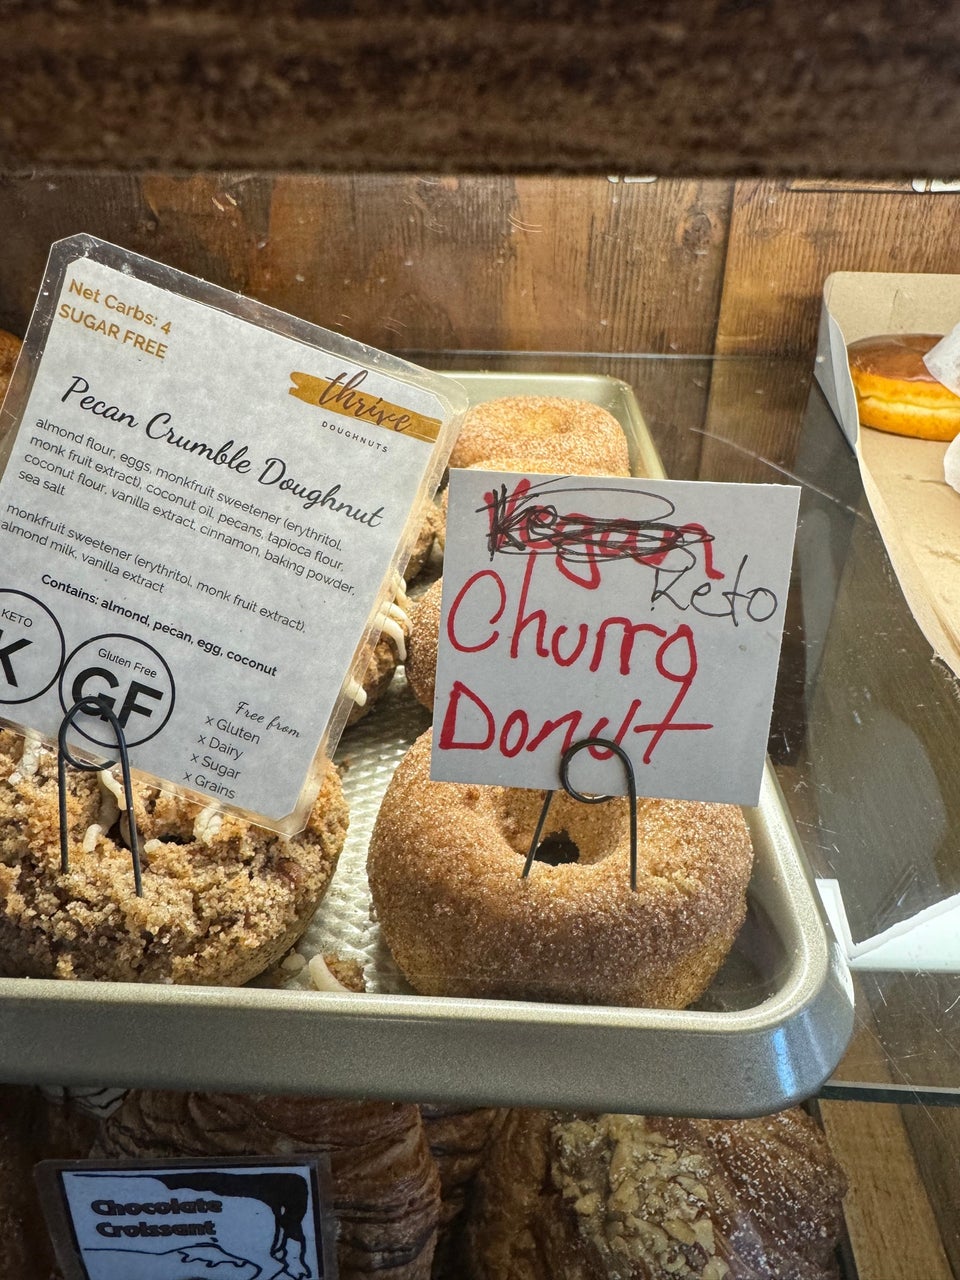 Net Carbs: 4
SUGAR FREE
thrive
DOUGHNUTS
Pecan Crumble Doughnut
almond flour, eggs, monkfruit sweetener (erythritol,
monk fruit extract), coconut oil, pecans, tapioca flour,
coconut flour, vanilla extract, cinnamon, baking powder,
sea salt
monkfruit sweetener (erythritol, monk fruit extract),
almond milk, vanilla extract
Contains: almond, pecan, egg, coconut
KETO
K
Gluten Free
GF
Free from
x Gluten
x Dairy
x Sugar
x Grains
Vegan
Keto
Churro
Donut
Chocolate
Croissant